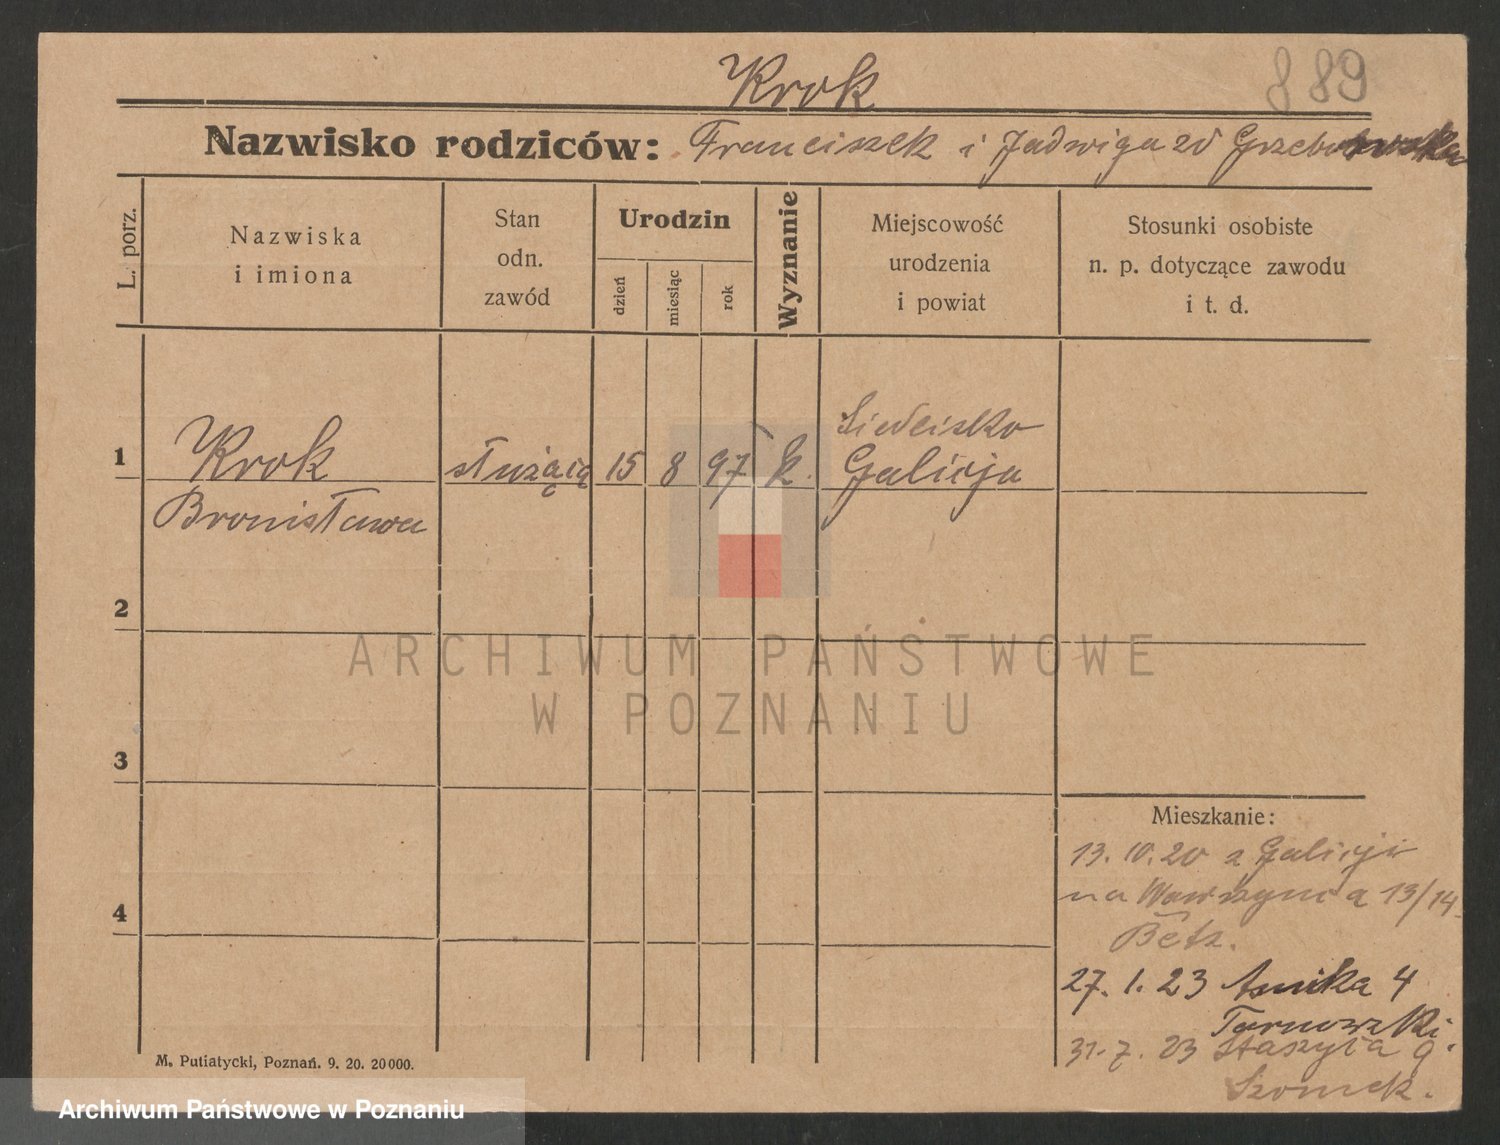 Krok
889
Nazwisko rodziców: Franciszek i Jadwiga zd
L. porz.
Nazwiska
i imiona
Stan
odn.
zawód
Urodzin
dzień
miesiąc
rok
Wyznanie
Miejscowość
urodzenia
i powiat
Stosunki osobiste
n. p. dotyczące zawodu
i t. d.
1
Krok
Bronisława
służąca
15
8
97
k.
Galicja
2
3
4
Mieszkanie:
13.10.20 z Galicji
na Wawrzynca 13/14
27.1.23 4
Tarnowski.
31.7.23 Staszyca 9
ARCHIWUM PAŃSTWOWE
W POZNANIU
M. Putiatycki, Poznań. 9. 20. 20000.
Archiwum Państwowe w Poznaniu